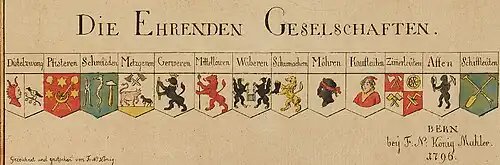 DIE EHRENDEN GESELSCHAFTEN.
Distelzwang Pfisteren Schmieden Metzgeren Gerweren Mittellöwen Wäberen Schumachern Möhren Kaufleüten Zimerleüten Affen Schiffleüten
BERN
beÿ F. N. König Mahler.
1796.
Gezeichnet und gestochen von F. N. König.